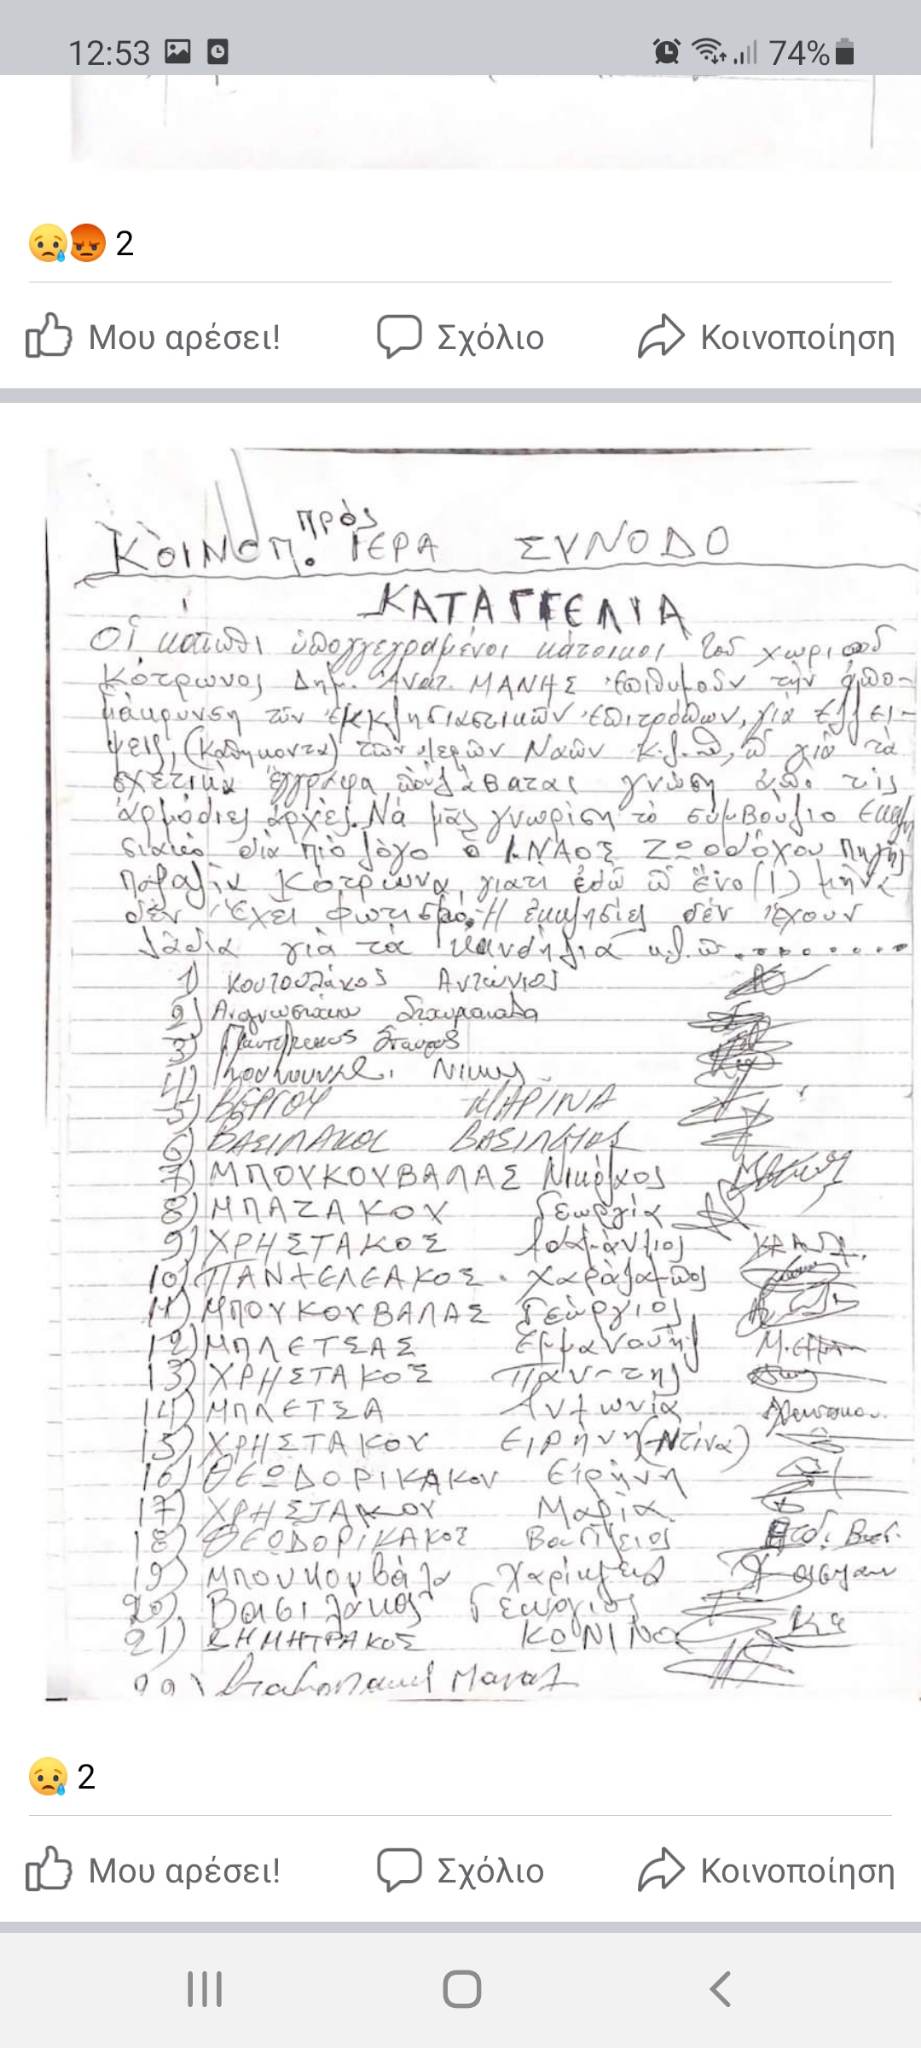 12:53 74%
2
Μου αρέσει! Σχόλιο Κοινοποίηση
πρὸς
Κοινοπ. ΙΕΡΑ ΣΥΝΟΔΟ
ΚΑΤΑΓΓΕΛΙΑ
Οἱ κάτωθι ὑπογγεγραμένοι κάτοικοι τοῦ χωριοῦ
Κότρωνος Δημ. Ἀνατ. ΜΑΝΗΣ ἐπιθυμοῦν τὴν ἀπο-
μάκρυνση τῶν ἐκκλησιαστικῶν ἐπιτρόπων, γιὰ ἐλλεί-
ψεις, (καθήκοντα) τῶν ἱερῶν Ναῶν κ.λ.π, γιὰ τὰ
σχετικὰ ἔγγραφα ποὺ λάβατας γνώση ἀπο τὶς
ἁρμόδιες ἀρχὲς. Νὰ μᾶς γνωρίση τὸ συμβούλιο Εκκλη
σιαικό διὰ πιὸ λόγο ὁ Ι.ΝΑΟΣ ΖΩΟΔΟΧΟΥ Πηγῆς
Παραλία Κότρωνα, γιατι ἐδῶ ἕνα (1) μήνα
δὲν ἔχει φωτισμό. Η ἐκκλησίες δέν ἔχουν
λάδια γιὰ τὰ κανδήλια κ.λ.π..........
1) κουτουλάκος Αντώνιος
2) Σταυρουλα
3) Σταυρος
4) Νικος
5) ΒΕΡΓΟΥ ΜΑΡΙΝΑ
6) ΒΑΣΙΛΑΚΟΣ ΒΑΣΙΛΕΙΟΣ
7) ΜΠΟΥΚΟΥΒΑΛΑΣ Νικόλαος
8) ΜΠΑΖΑΚΟΥ Γεωργία
9) ΧΡΗΣΤΑΚΟΣ
10) ΠΑΝΤΕΛΕΑΚΟΣ Χαράλαμπος
11) ΜΠΟΥΚΟΥΒΑΛΑΣ Γεώργιος
12) ΜΠΛΕΤΣΑΣ Εμμανουήλ
13) ΧΡΗΣΤΑΚΟΣ Παν-της
14) ΜΠΛΕΤΣΑ Αντωνία
15) ΧΡΗΣΤΑΚΟΥ ΕΙΡΗΝΗ (Ντίνα)
16) ΘΕΩΔΟΡΙΚΑΚΟΥ Εἰρήνη
17) ΧΡΗΣΤΑΚΟΥ Μαρία
18) ΘΕΩΔΟΡΙΚΑΚΟΣ Βασίλειος
19) Μπουκουβάλα Χαρίκλεια
20) Βασιλάκος Γεώργιος
21) ΔΗΜΗΤΡΑΚΟΣ ΚΩΝ/ΝΟΣ
2
Μου αρέσει! Σχόλιο Κοινοποίηση